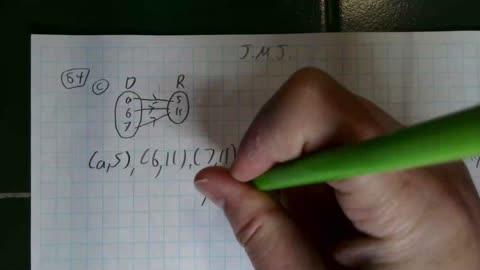 J.M.J.
54 c D R
a 5
6 11
7
(a,5), (6,11), (7,11)